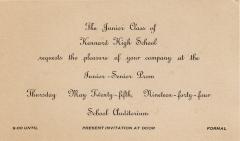 The Junior Class of
Kennard High School
requests the pleasure of your company at the
Junior-Senior Prom
Thursday May Twenty-fifth, Nineteen-forty-four
School Auditorium
9:00 UNTIL PRESENT INVITATION AT DOOR FORMAL